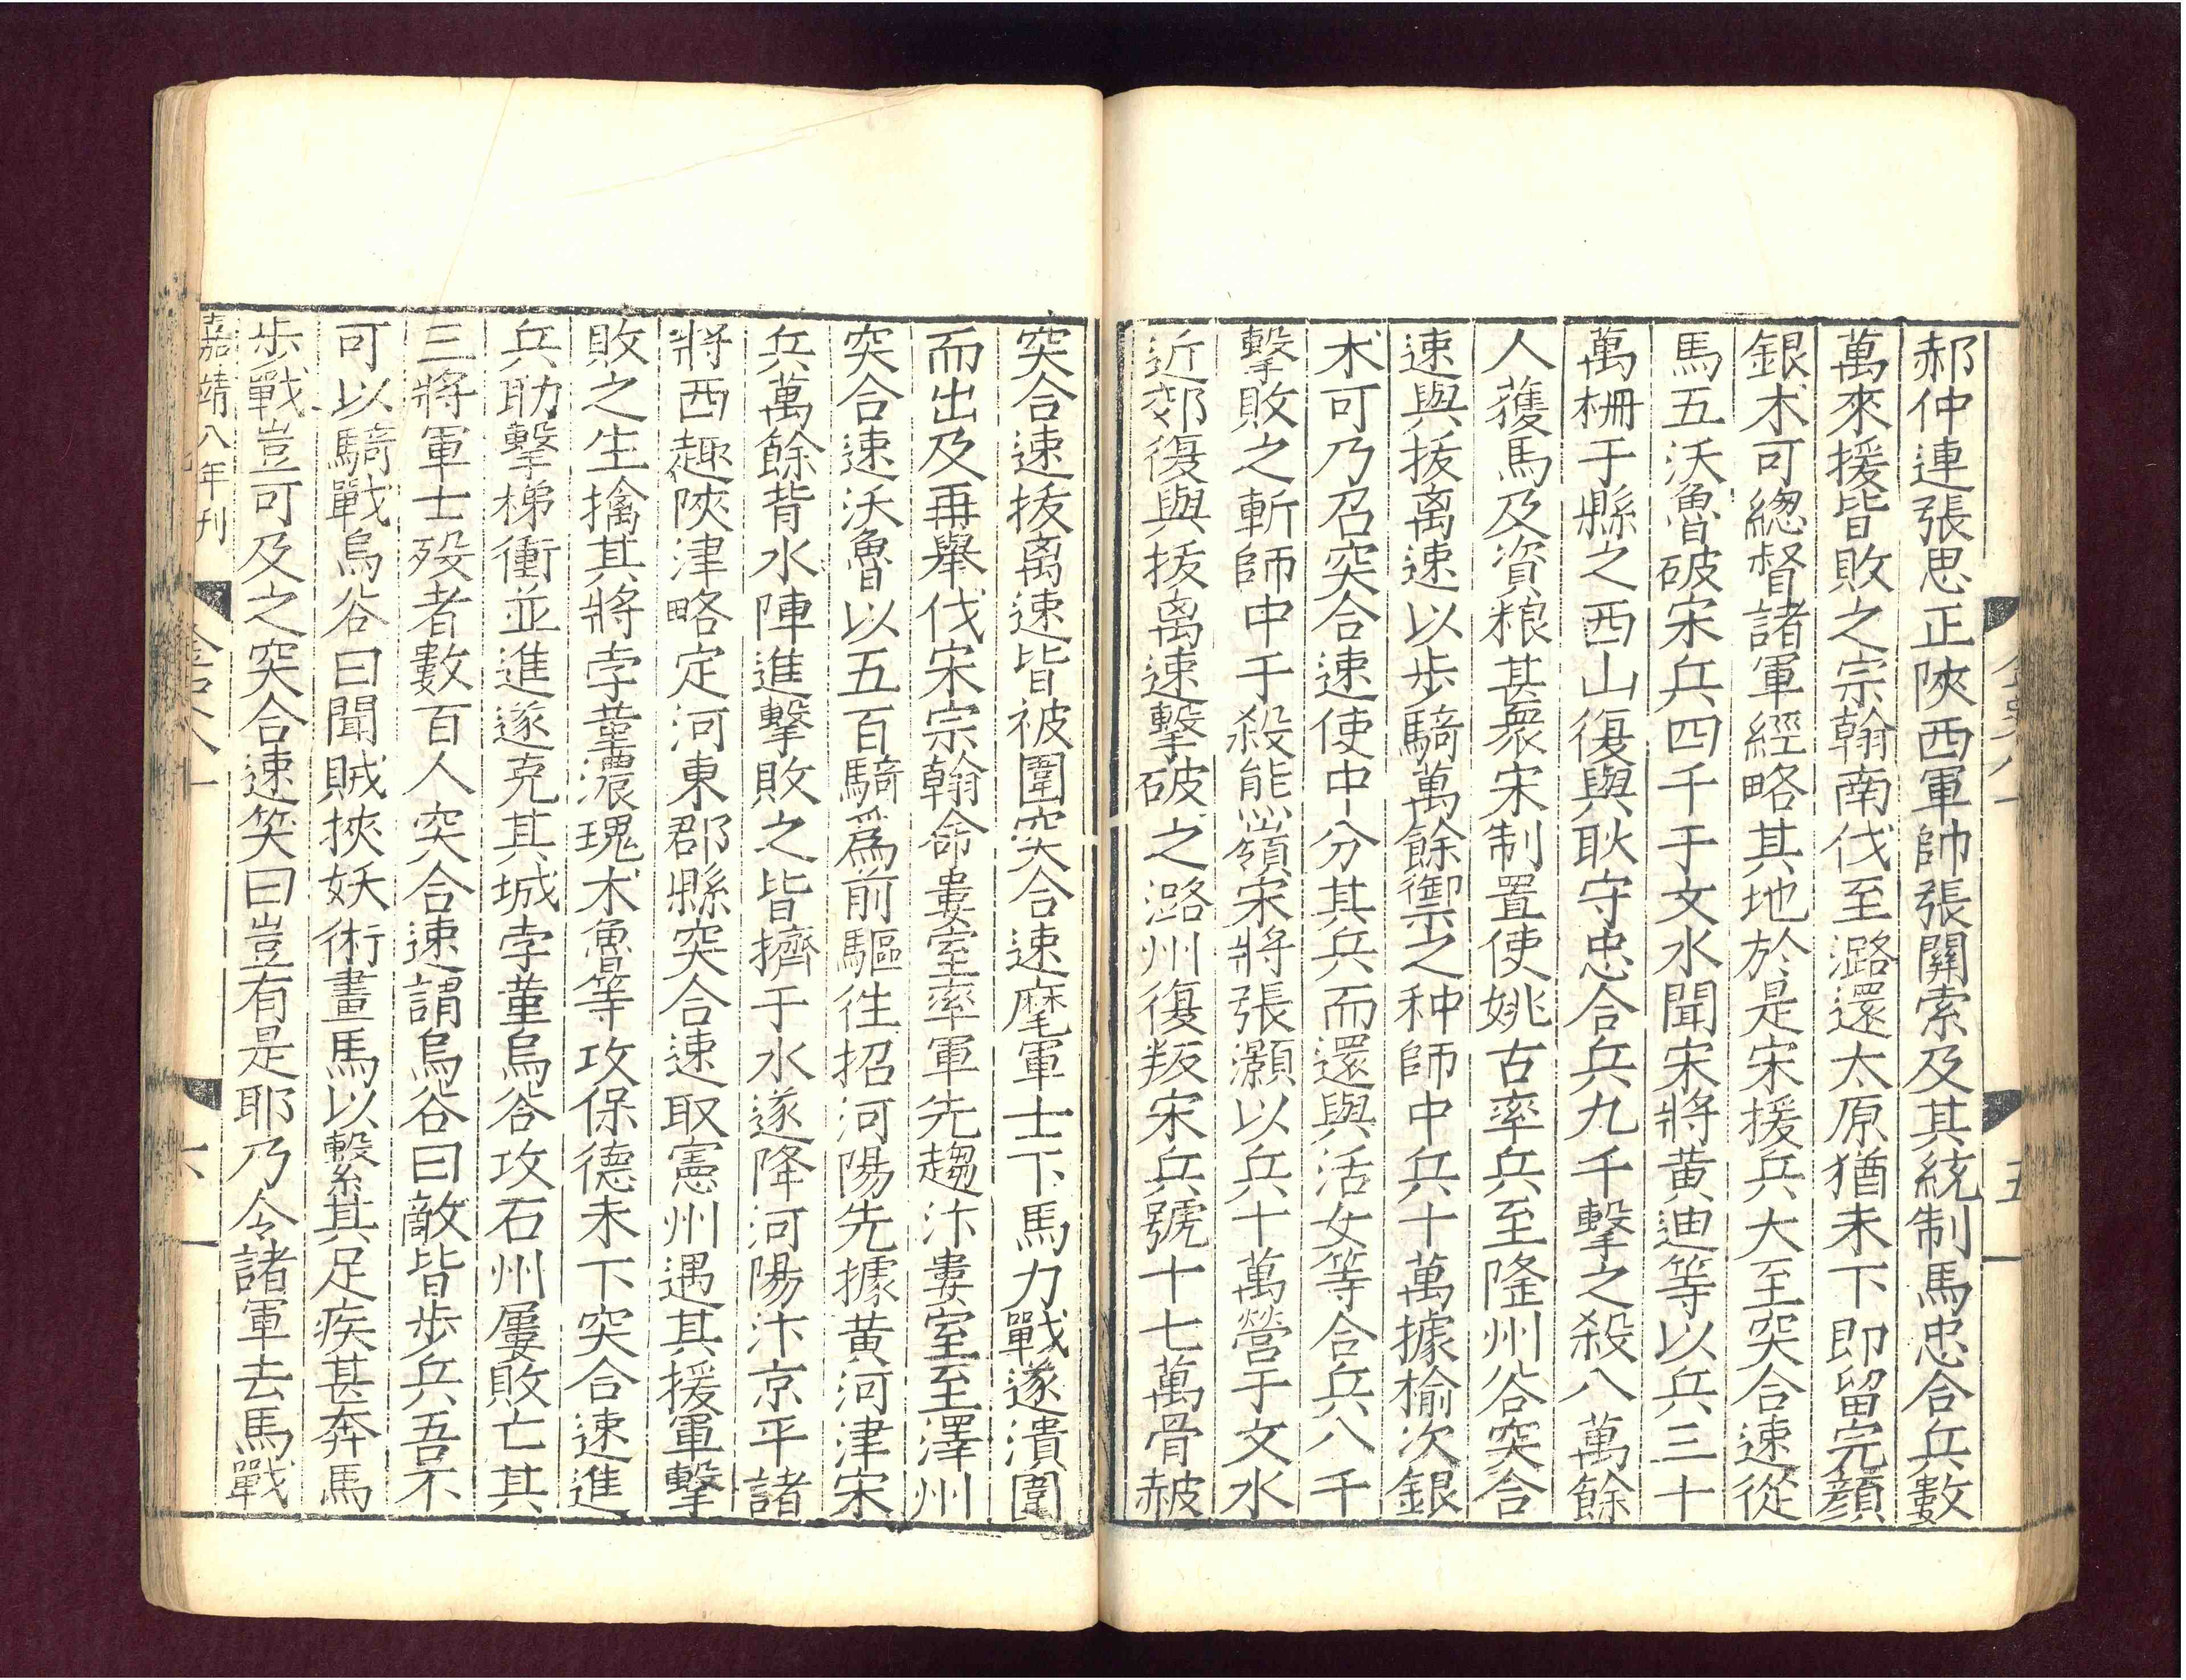 郝仲連張思正陝西軍帥張關索及其統制馬忠合兵數
萬來援皆敗之宗翰南伐至潞還太原猶未下即留完顔
銀术可總督諸軍經略其地於是宋援兵大至突合速從
馬五沃魯破宋兵四千于文水聞宋將黃迪等以兵三十
萬柵于縣之西山復與耿守忠合兵九千擊之殺八萬餘
人獲馬及資粮甚衆宋制置使姚古率兵至隆州谷突合
速與拔离速以步騎萬餘禦之种師中兵十萬據榆次銀
术可乃召突合速使中分其兵而還與活女等合兵八千
擊敗之斬師中于殺熊嶺宋將張灝以兵十萬營于文水
近郊復與拔离速擊破之潞州復叛宋兵號十七萬骨赧
突合速拔离速皆被圍突合速麾軍士下馬力戰遂潰圍
而出及再舉伐宋宗翰命婁室率軍先趨汴婁室至澤州
突合速沃魯以五百騎爲前驅往招河陽先據黃河津宋
兵萬餘背水陣進擊敗之皆擠于水遂降河陽汴京平諸
將西趣陝津略定河東郡縣突合速取憲州遇其援軍擊
敗之生擒其將孛堇濃瑰术魯等攻保德未下突合速進
兵助擊梯衝並進遂克其城孛堇烏谷攻石州屢敗亡其
三將軍士歿者數百人突合速謂烏谷曰敵皆步兵吾不
可以騎戰烏谷曰聞賊挾妖術畫馬以繫其足疾甚奔馬
步戰豈可及之突合速笑曰豈有是耶乃令諸軍去馬戰
嘉靖八年刊
六